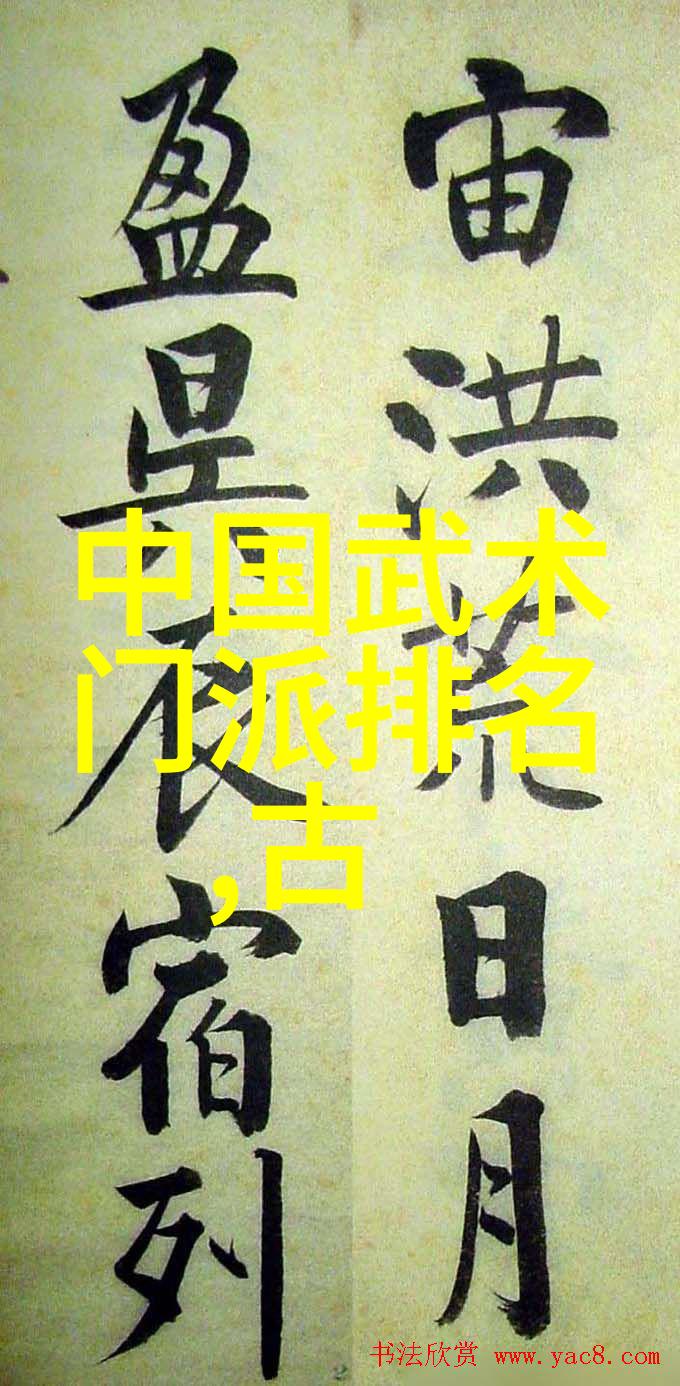 宙洪荒日月
盈昃辰宿列
中国武术
门派排名
,古
书法欣赏 www.yac8.com